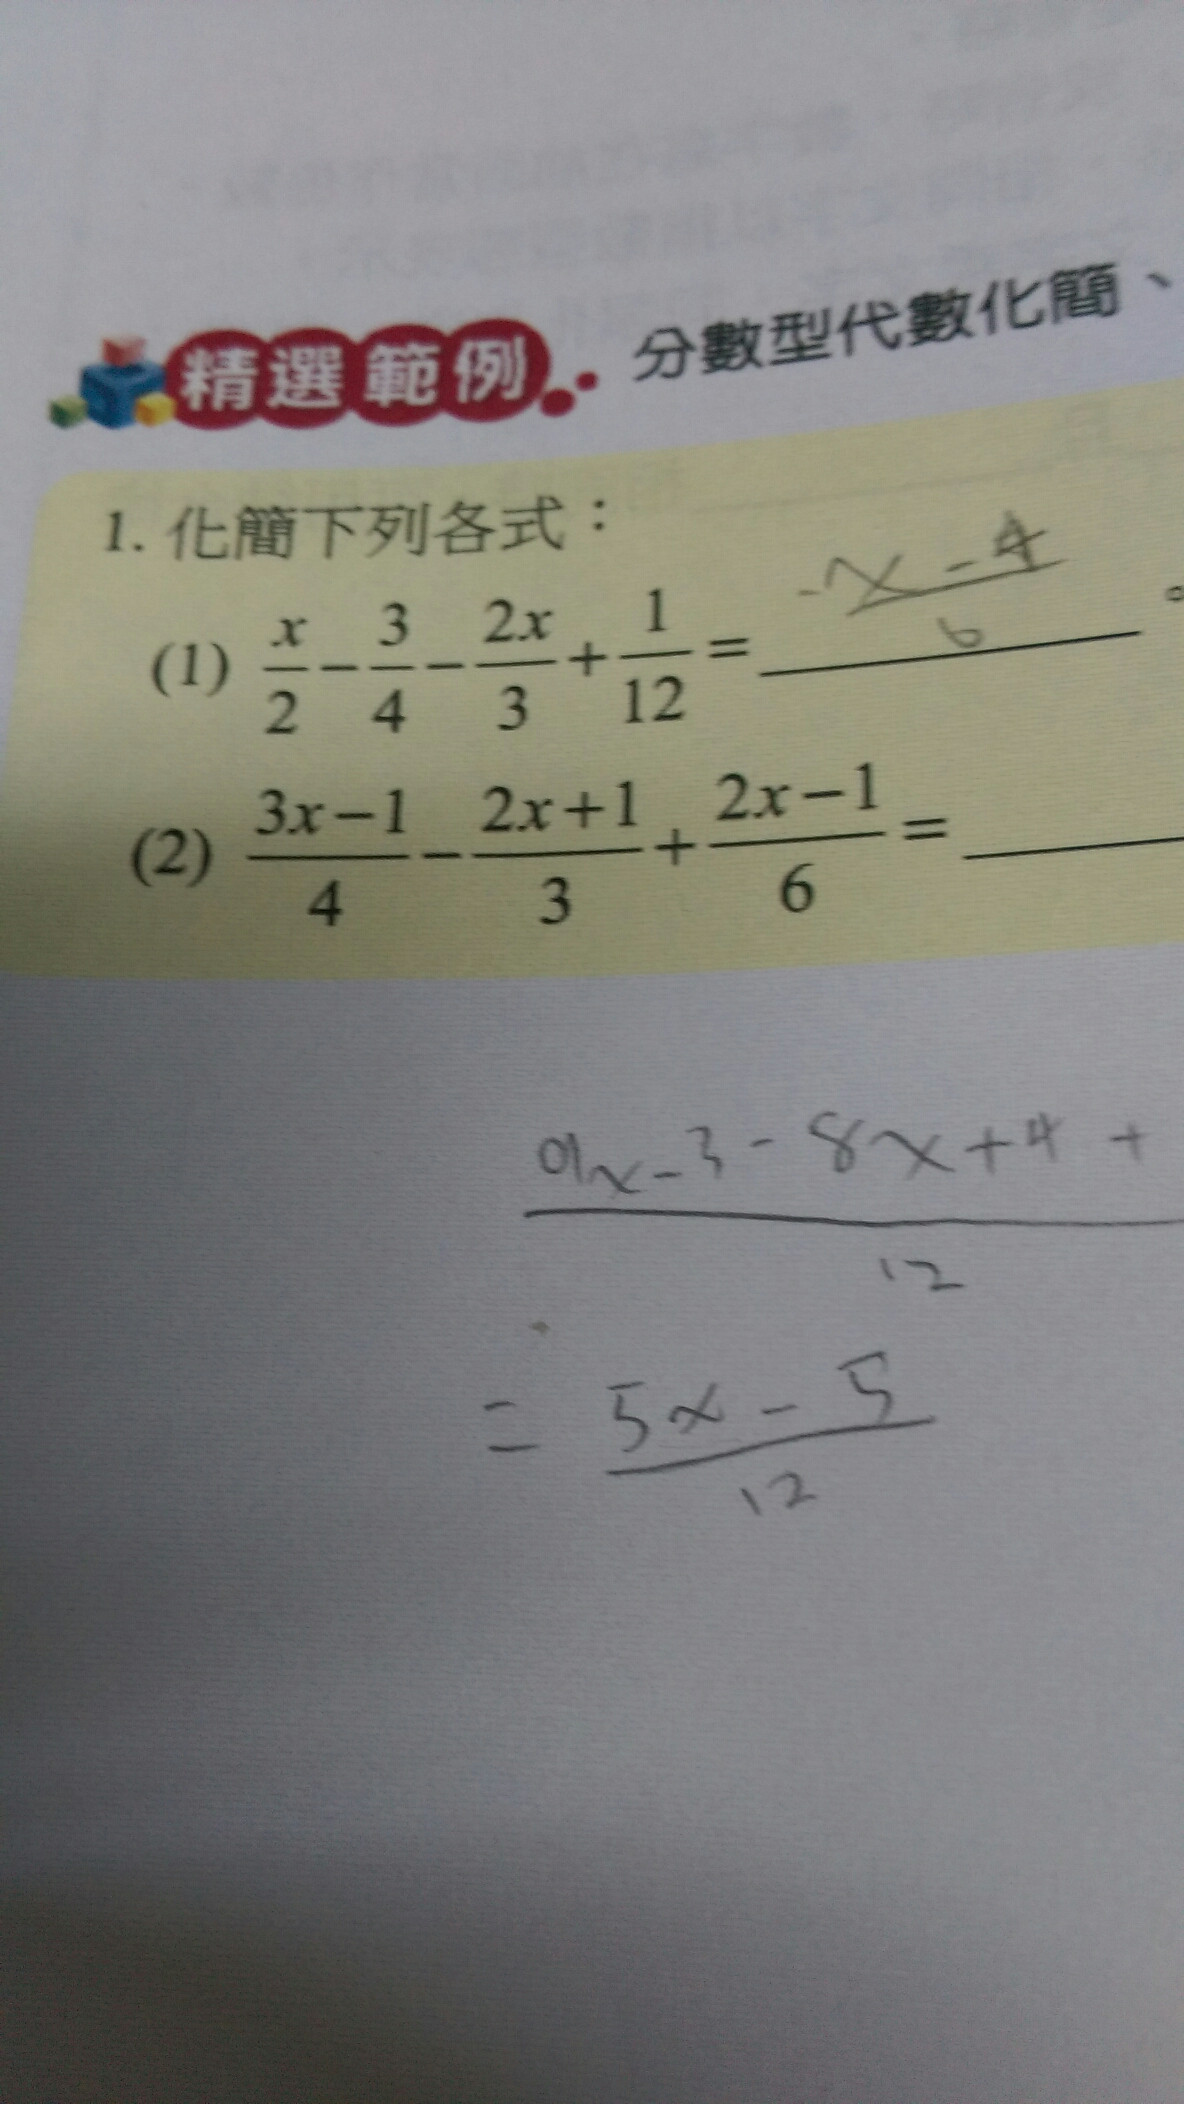 精選範例 分數型代數化簡、
1. 化簡下列各式：
(1) x/2 - 3/4 - 2x/3 + 1/12 = (-x-4)/6 。
(2) (3x-1)/4 - (2x+1)/3 + (2x-1)/6 =
9x-3-8x+4+
12
= (5x-5)/12